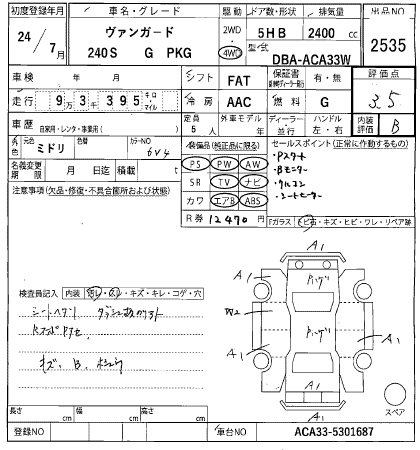 初度登録年月 車名・グレード 駆動 ドア数・形状 排気量 出品NO
24/7月 ヴァンガード 2WD 4WD 5HB 2400 cc 2535
240S G PKG 型式 DBA-ACA33W
車検 年 月 シフト FAT 保証書 有・無 評価点
走行 9万3千395 キロ・マイル 冷房 AAC 燃料 G 3.5
車歴 自家用・レンタ・事業用( ) 定員 5人 外車モデル 年 ディーラー・並行 ハンドル 左・右 内装評価 B
外色 元色 ミドリ 色替 カラーNO 6V4 装備品(純正品に限る) セールスポイント(正常に作動するもの)
名義変更期限 月 日迄 積載 t PS PW AW
注意事項(欠品・修復・不具合箇所および状態) SR TV ナビ
カワ エアB ABS
R券 12470円
・Pスタート
・Bモニター
・アルコン
・シートヒーター
Fガラス トビ石・キズ・ヒビ・ワレ・リペア跡
検査員記入 内装 汚レ・スレ・キズ・キレ・コゲ・穴
キズ、B、
A1
A1 A1
W2
A1 A1
A1
スペア
長さ cm 幅 cm 高さ cm
登録NO 車台NO ACA33-5301687